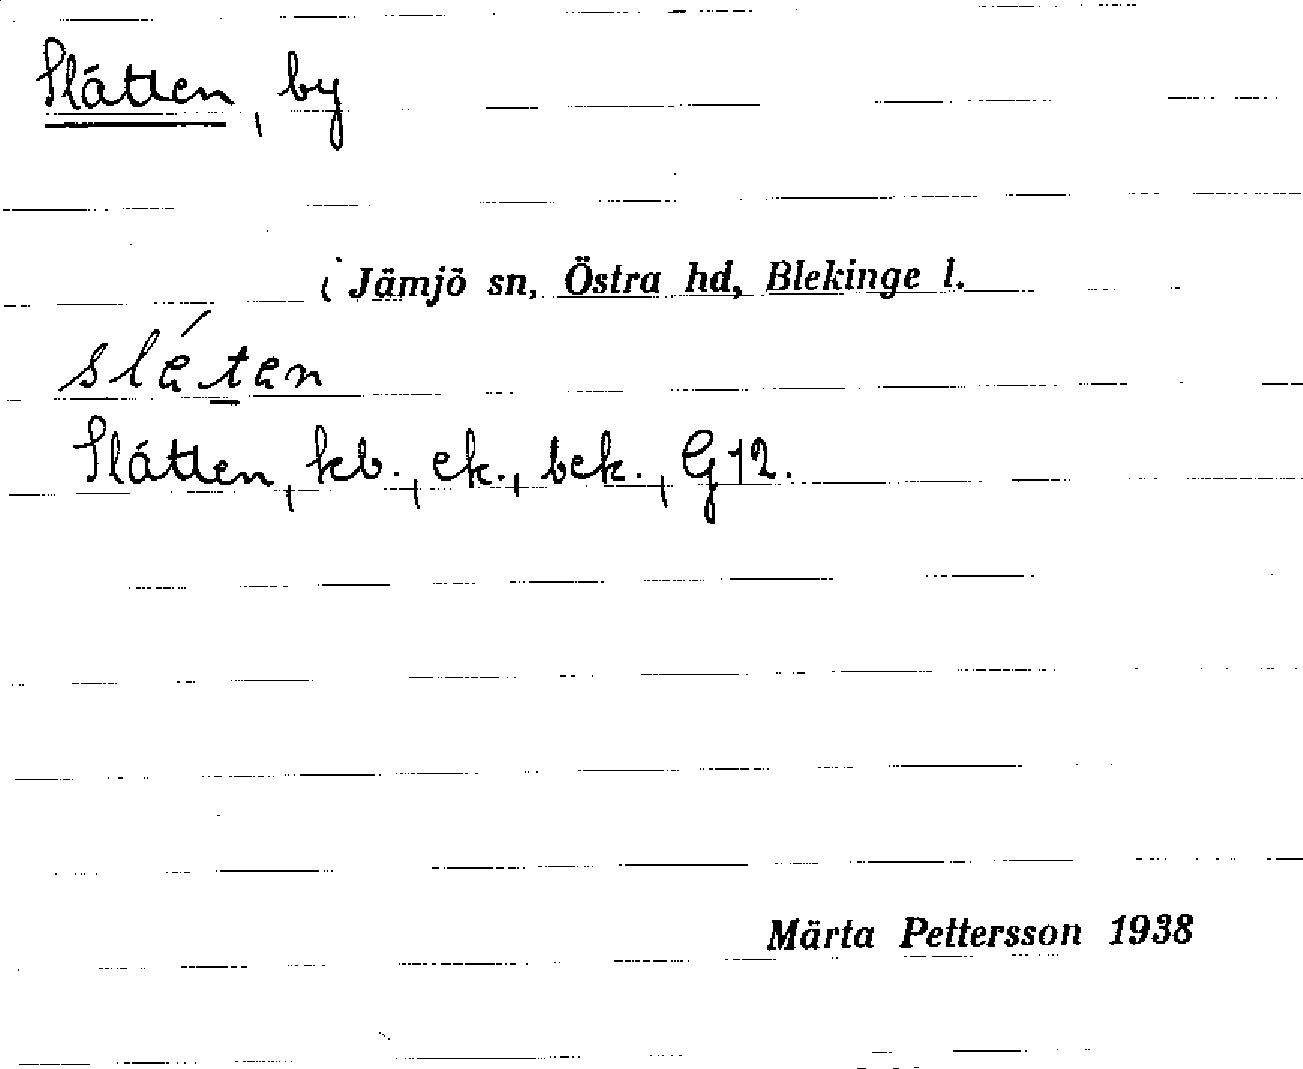 Slätten, by
i Jämjö sn, Östra hd, Blekinge l.
Slätten, kb., ek., bek., G12.
Märta Pettersson 1938